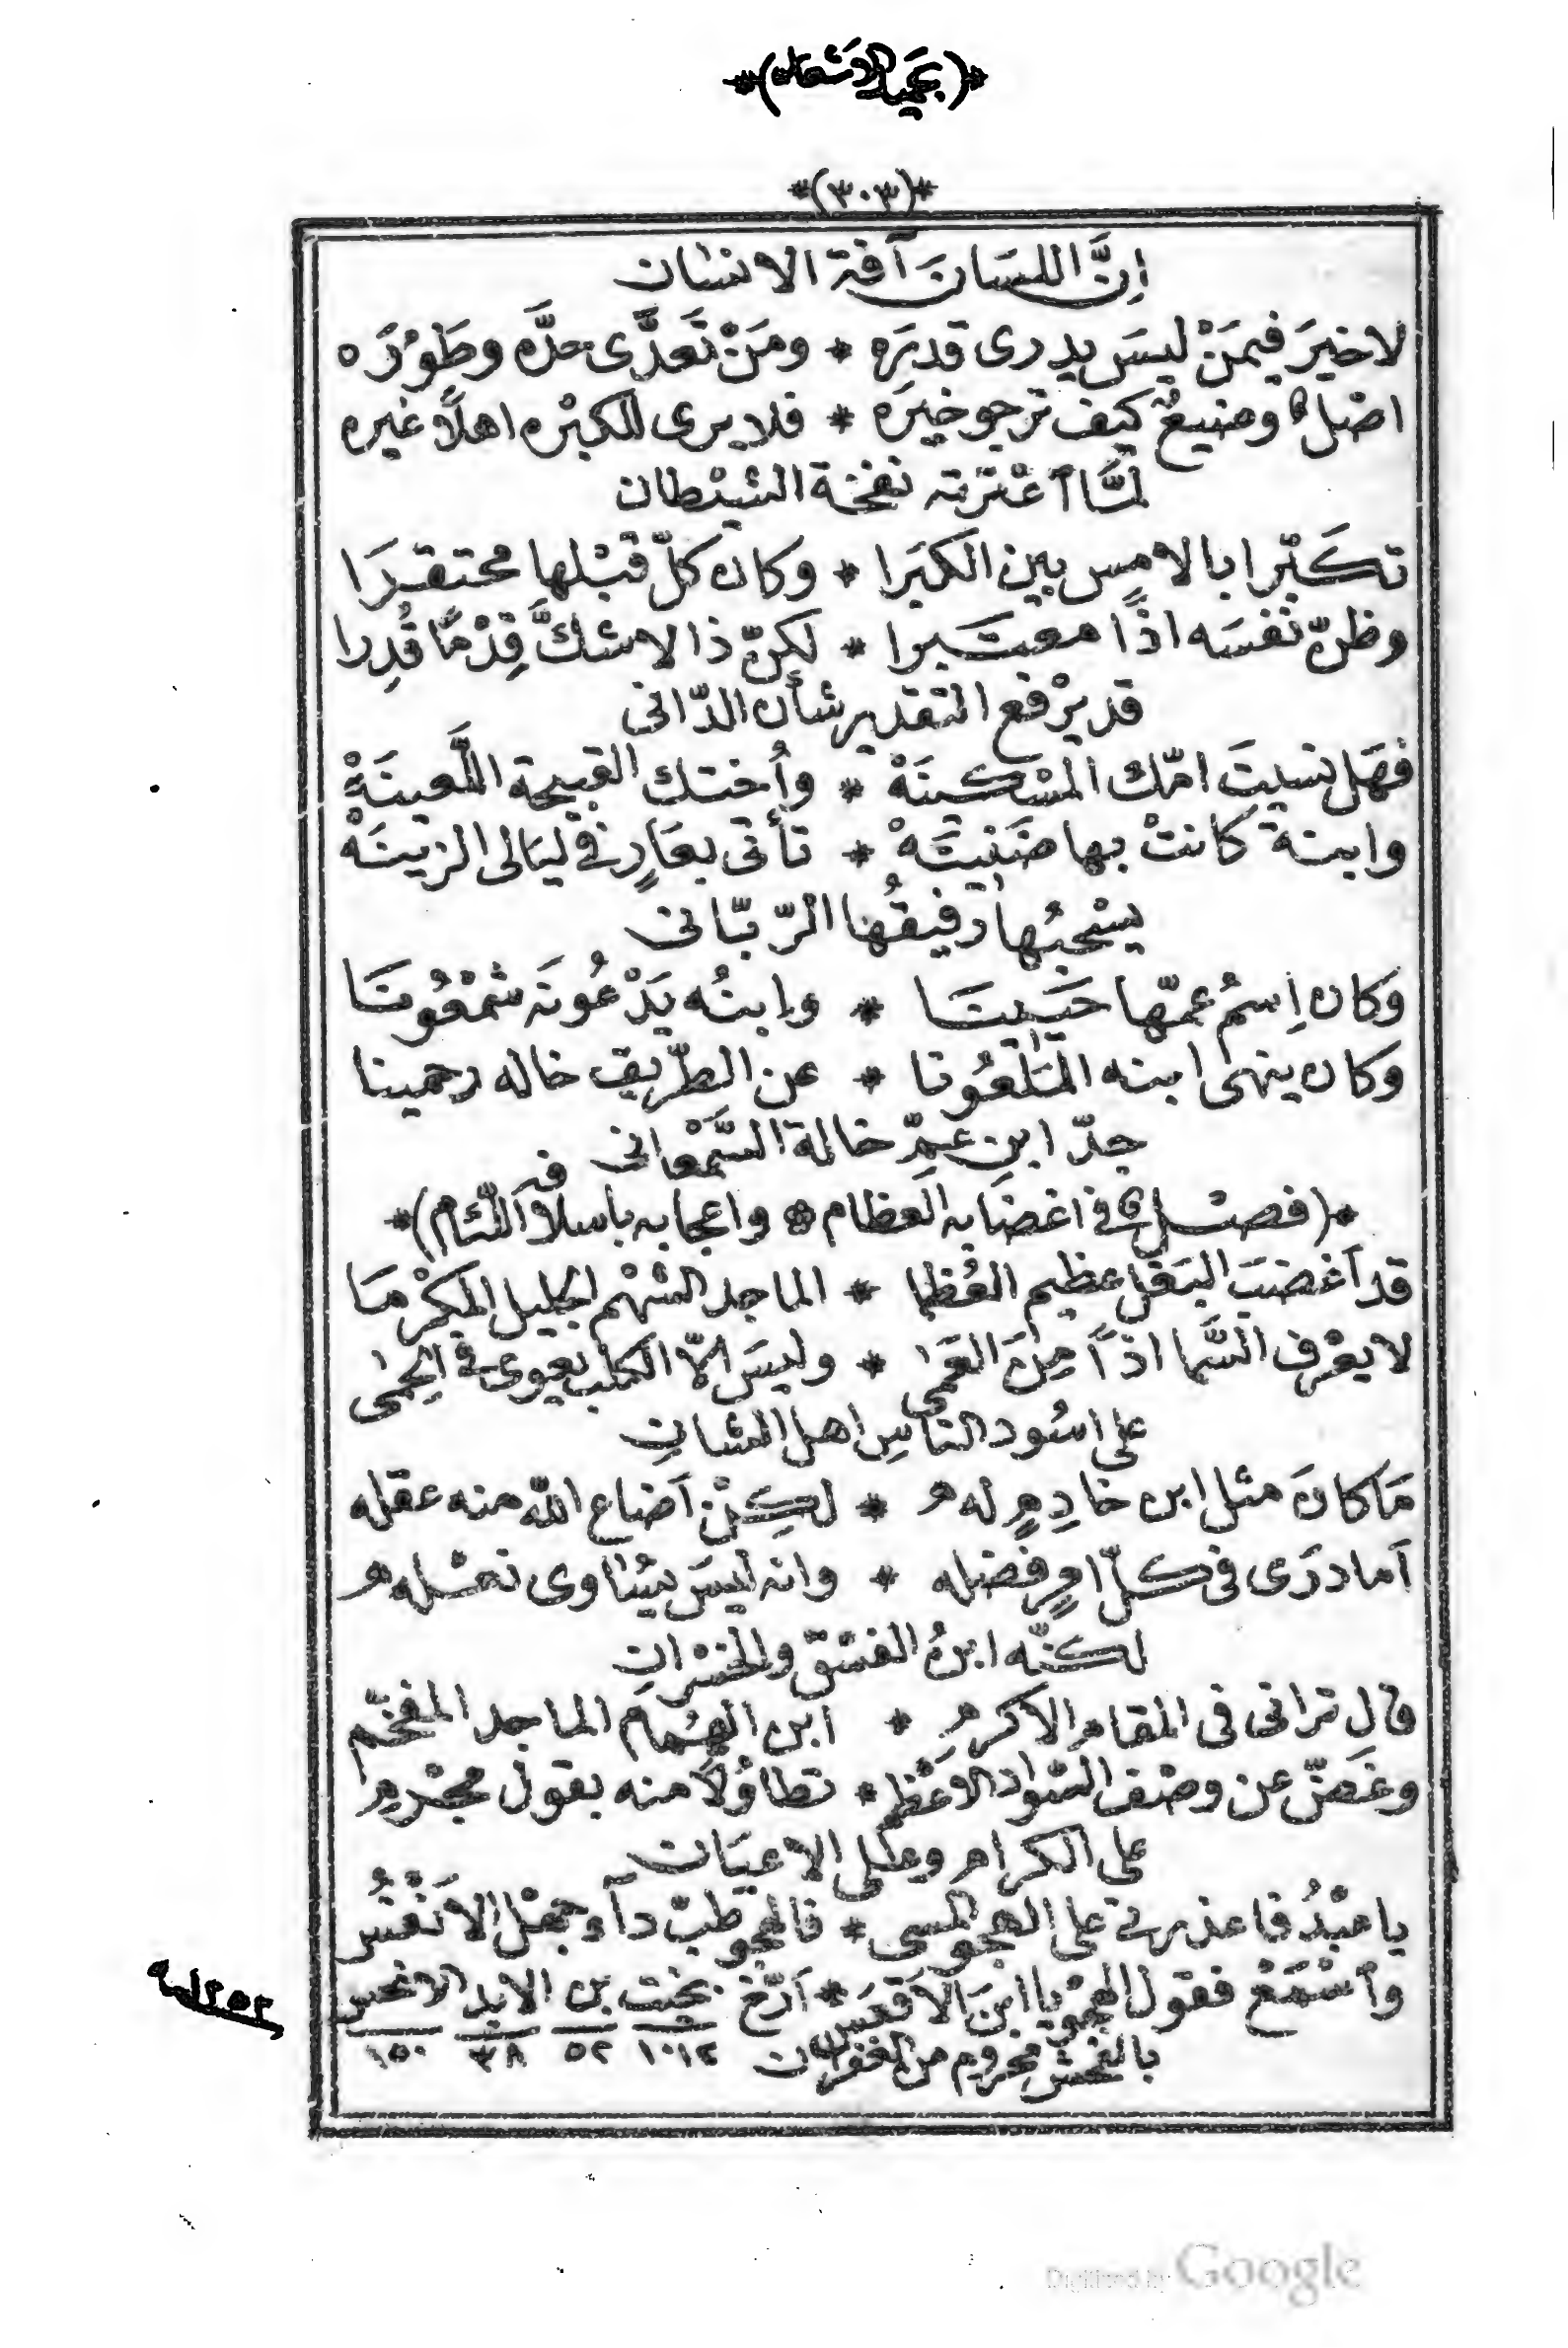 *(بحميد الاشعار)*
*(٣٠٣)*
اِنَّ اللسَانَ آفة الانسان
لا خيرَ فيمَنْ ليسَ يدرى قدرَه * ومَنْ تَعَدَّى حدَّه وطَوْرَه
اصْلٌ وضيعٌ كيف ترجو خيرَه * فلا يرى للكبْره اهلاً غيره
لمَّا اَعْترته نفخة الشيْطان
تكَبّرا بالامسِ بين الكبَرا * وكان كلّ قبْلها محتقرَا
وظنّ نفسَه اذًا معتَبرا * لكنّ ذا لا شكَّ قِدْمًا قُدِرا
قد يرْفع التقدير شأن الدّانى
فهَل نسيتَ امّك المسْكينَهْ * واُختك القبيحة اللَّعينَهْ
وابنة كانتْ بها ضَنيَنَهْ * تأتى بعَارٍ فى ليَالى الزينَهْ
يسْحبُها رفيقُها الرّبّانى
وكان اِسمُ عمّها حَييتَا * وابنُه يَدْعُونَه شمْعُونَا
وكان ينهى ابنه الملْعُونا * عن الطّريق خاله رحمينا
جدّ ابنِ عمِّ خالة السَّمْعانى
*(فصْلٌ فى اغضابه العظام * واعجابه باسلافه اللّئام)*
قد اَغضبَ البغل عظيم العُظما * الماجد الشهْم الجليل المكْرمَا
لا يعْرف السَّما اذاً مِنَ العَمى * وليسَ الّا الكلب يعوى فى الحِمٰى
على اسُود الناسِ اهل الشانِ
مَا كانَ مثل ابن خادِمٍ له * لكِنْ اَضاع الله منه عقله
اَما دَرَى فى كلّ امرٍ فضله * وانه ليسَ يُسَاوى نعْله
لكنّه ابنُ الفسْق والخسْرانِ
قال ترانى فى المقام الاكرمِ * ابن الهمَام الماجد المفخّم
وغَضّ عن وصْف السّواد الاَعْظمِ * تطاوُلًا منه بقول مجْرمِ
على الكرام وعلى الاعيَان
يا عبْدُ فاعذرنى على الهجو المسى * فالهجو طبّ دآء جهْل الاَنفُسُ
واَسْمَعْ فقول الهجو يا ابنَ الاَقعَسِ * اَرّخ بخت بن الايد الانحس
١٠١٢ ٥٢ ٣٨ ١٥٠
بالفحش محروم من الغفران
١٢٥٢سنة
Digitized by Google